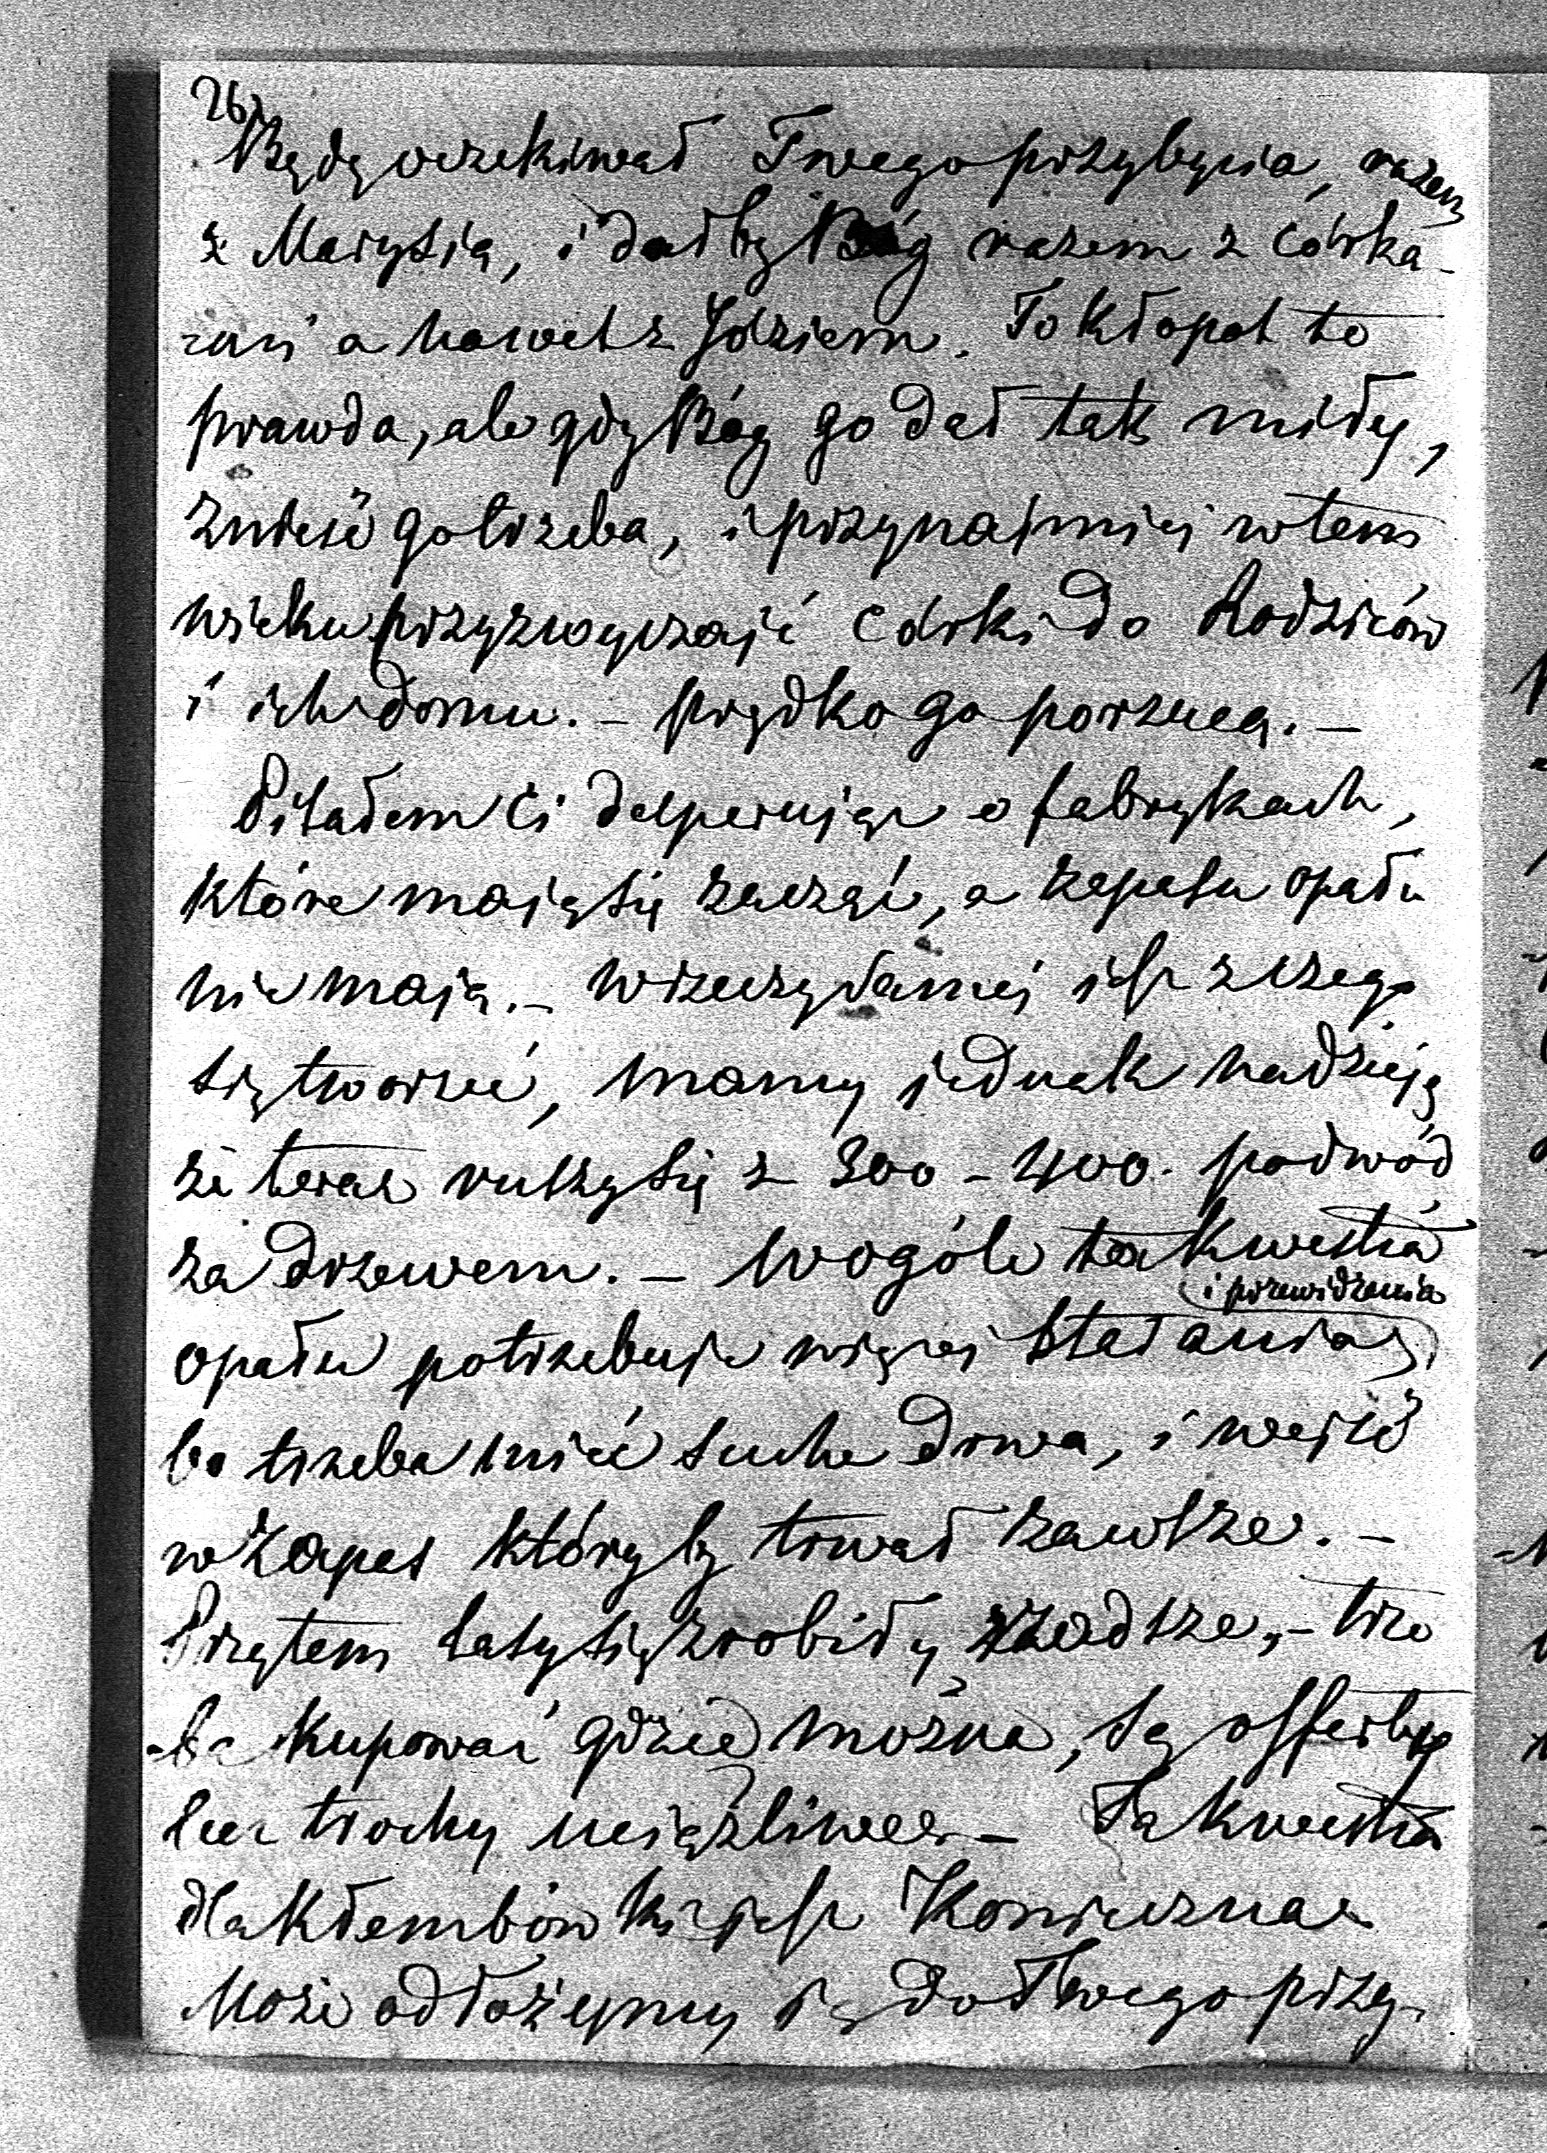 26
Będę oczekiwał Twego przybycia, razem
z Marysią, i dałby Bóg razem z córka-
-mi a nawet z Józiem. To kłopot to
prawda, ale gdy Bóg go dał tak miły,
znieść go trzeba, i przynajmniej w tem
wieku przyzwyczaić córki do Rodziców
i ich domu. – prędko go porzucą. –
Pisałem Ci desperując o fabrykach,
które mają się zacząć, a zapasu opału
nie mają. – W rzeczy samej jest z czego
się tworzić, mamy jednak nadzieję
że teraz ruszy się z 300 – 400. podwód
za drzewem. – Wogóle ta kwestia
i przewidzenia
opału potrzebuje więcej starania,
bo trzeba mieć suche drwa, i wejść
w zapas któryby trwał zawsze. –
Przytem lasy się zrobiły rzadsze, – trze
-ba kupować gdzie można, są offerty
lecz trochy uciążliwe. – Ta kwestia
dla Kłembówki jest konieczna
Może odłożymy ją do Twego przy-